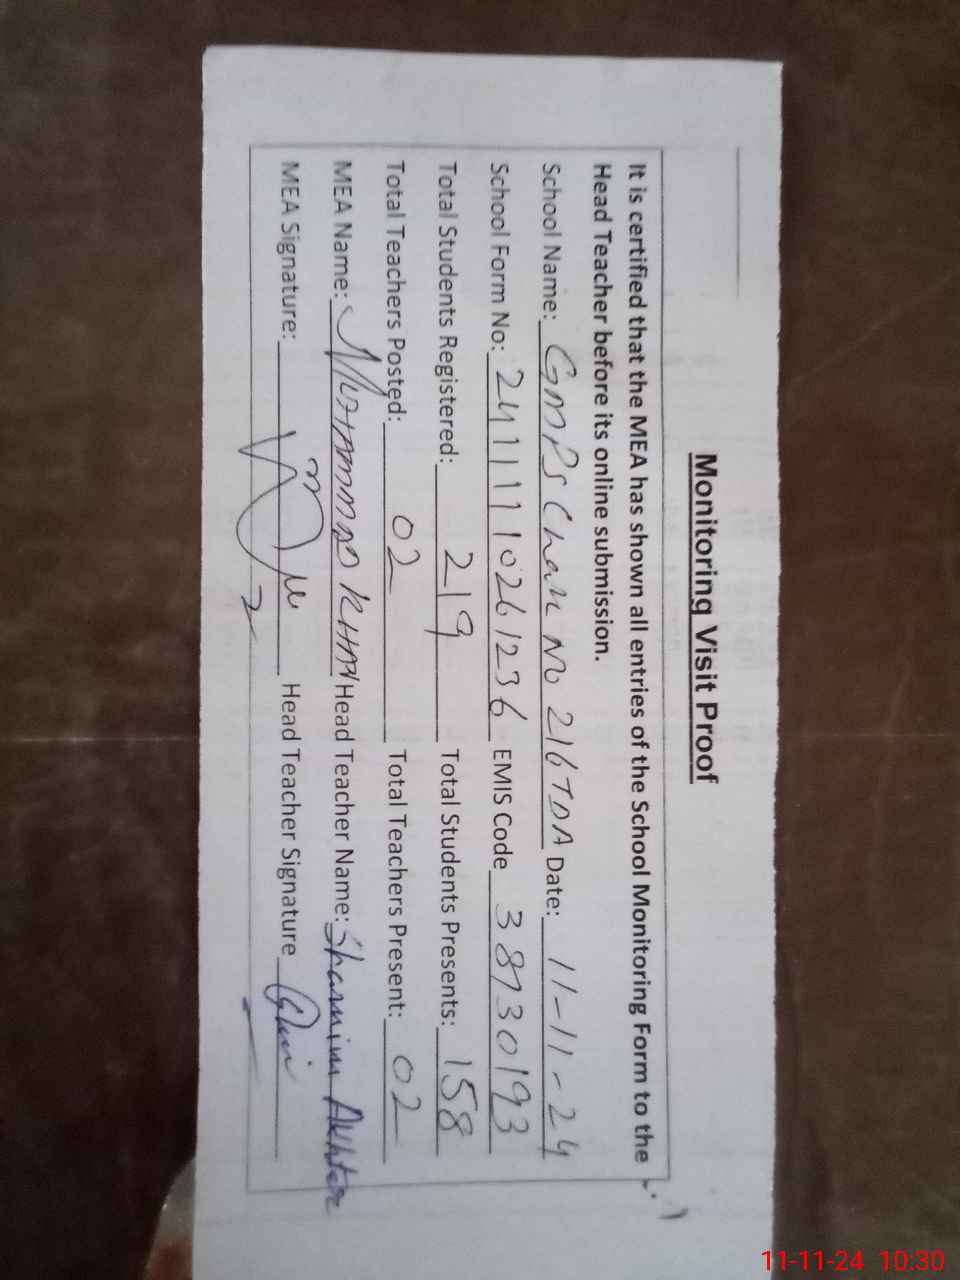 Monitoring Visit Proof
It is certified that the MEA has shown all entries of the School Monitoring Form to the
Head Teacher before its online submission.
School Name: GMPS Chak No 216 TDA Date: 11-11-24
School Form No: 2411110261236 EMIS Code 38730193
Total Students Registered: 219 Total Students Presents: 158
Total Teachers Posted: 02 Total Teachers Present: 02
MEA Name: Muhammad KHAN Head Teacher Name: Shamim Akhter
MEA Signature: Head Teacher Signature
11-11-24 10:30